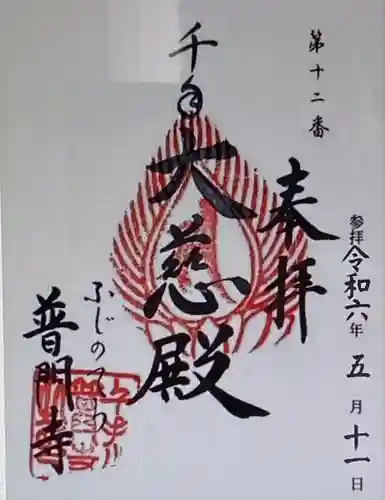 第十二番
奉拝
参拝 令和六年 五月十一日
千手
大慈殿
ふじのてら
普門寺